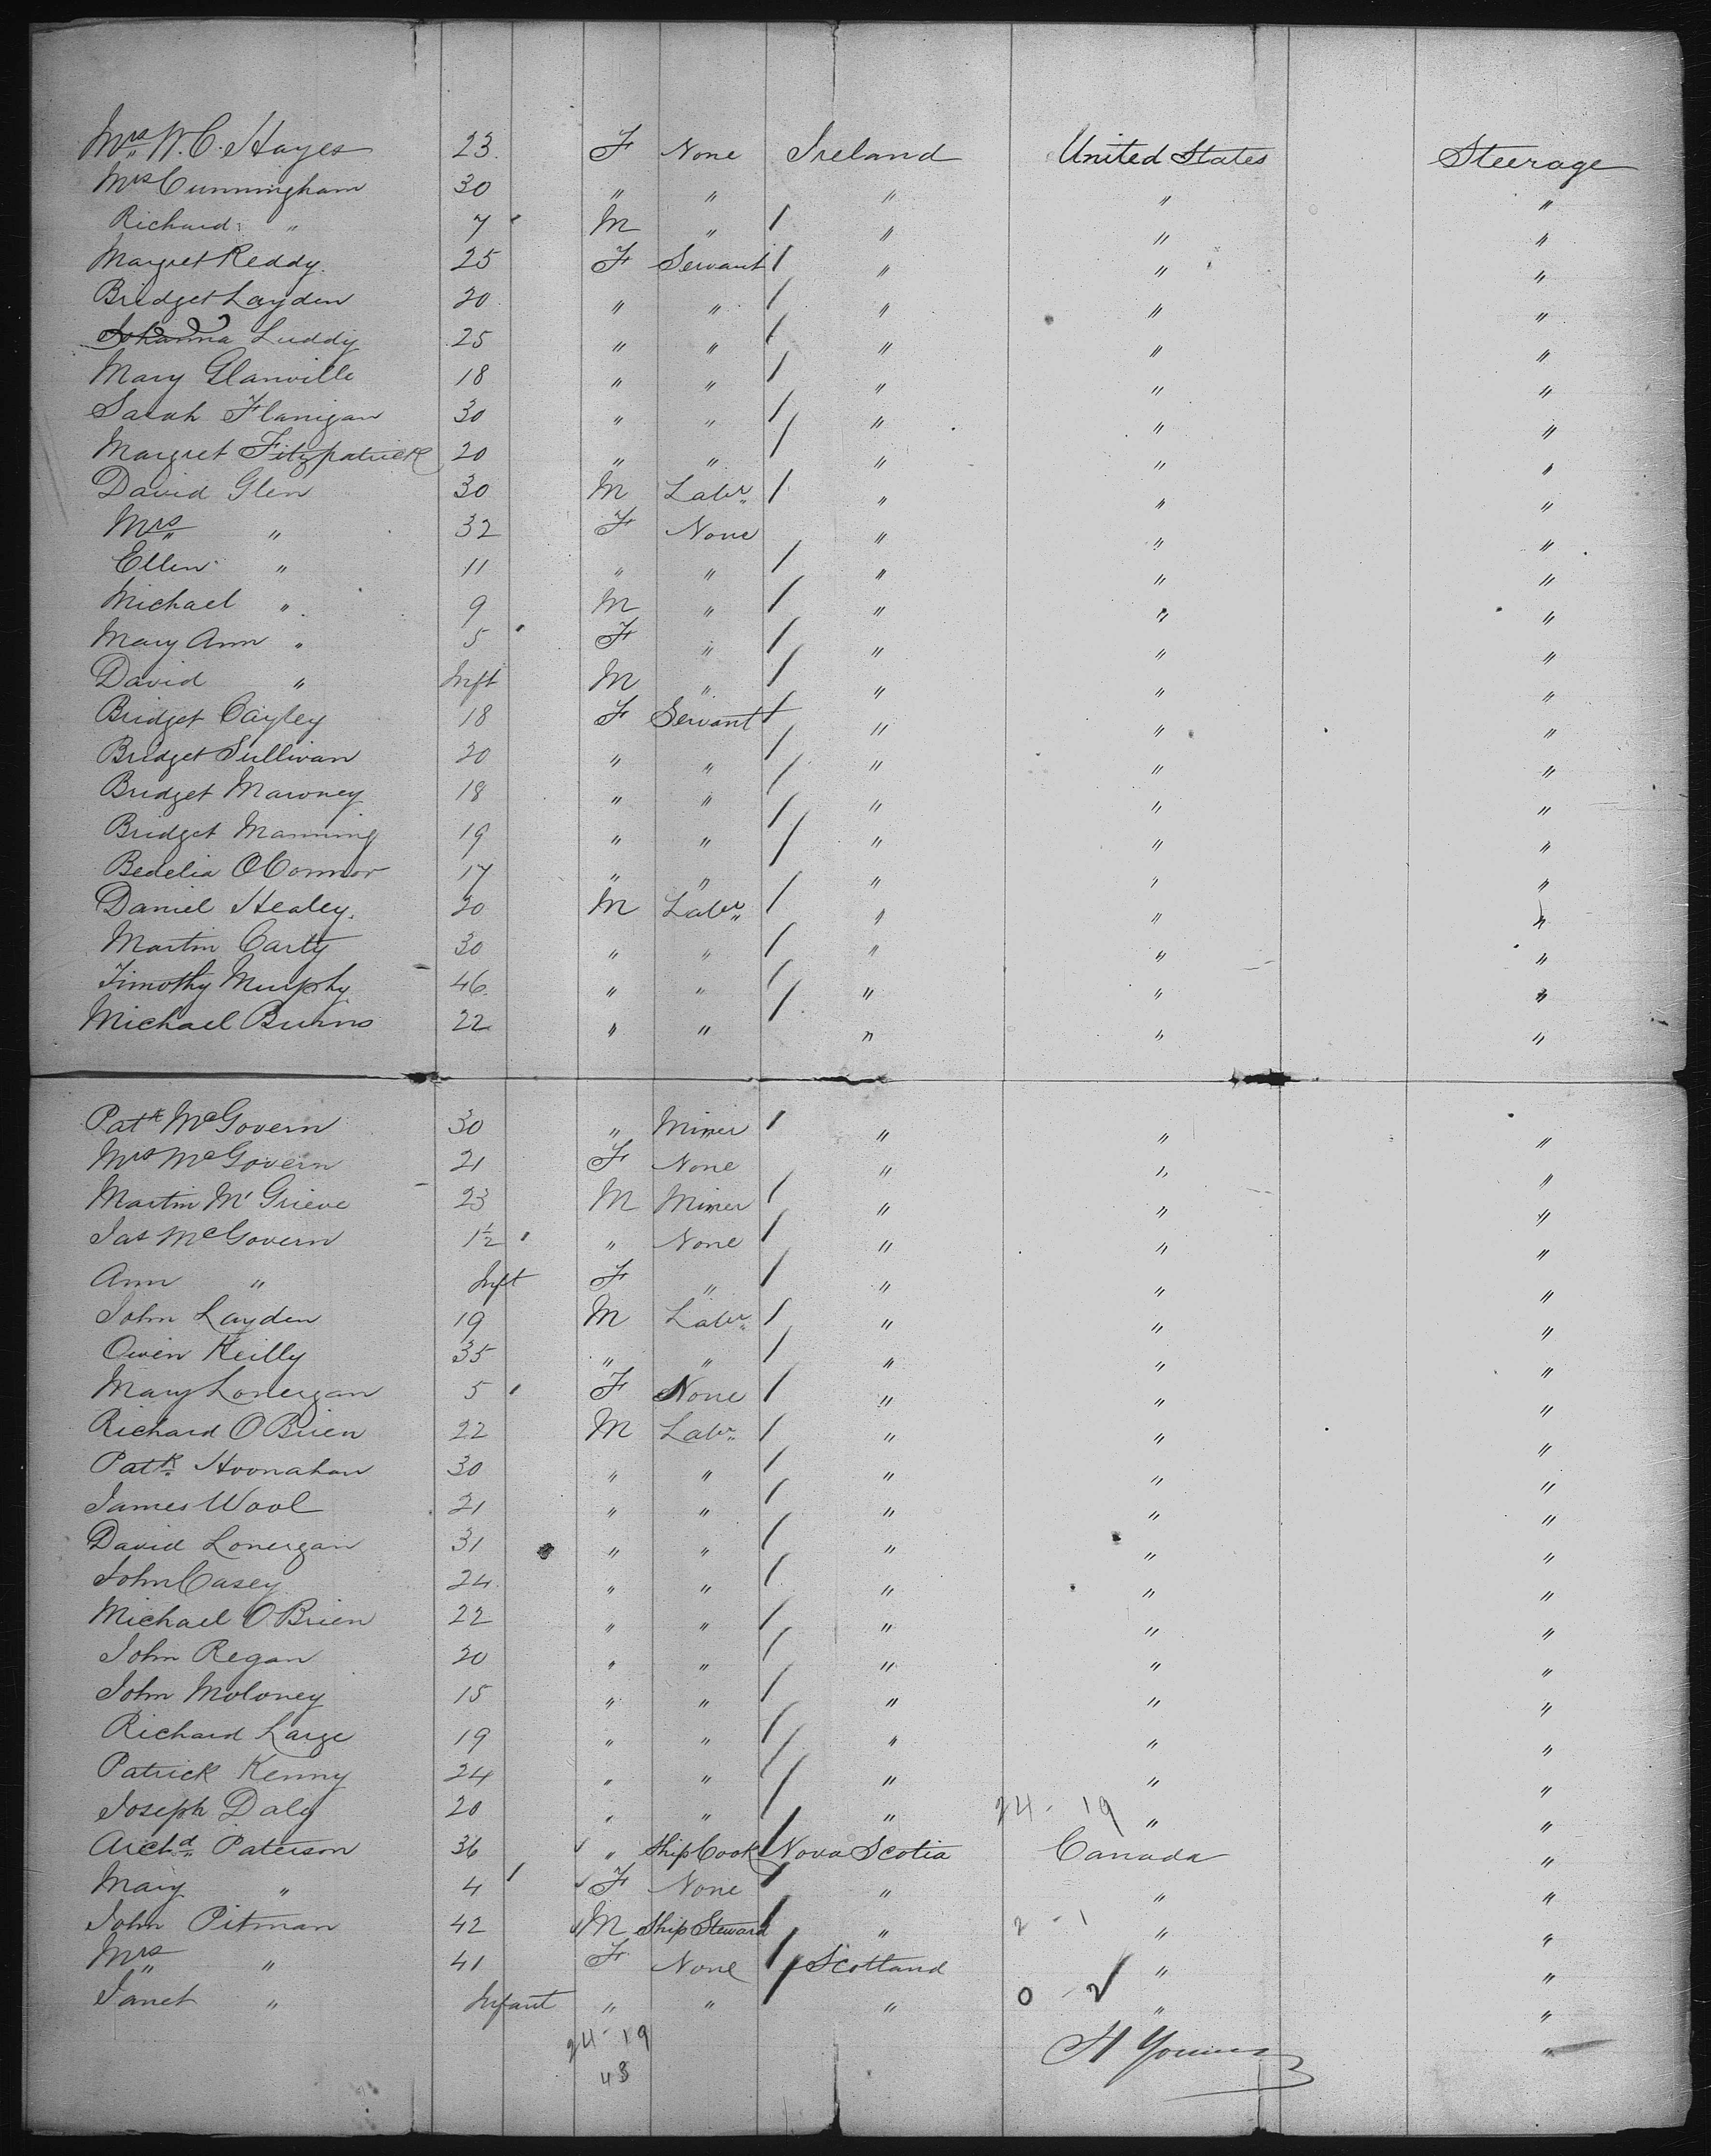 Mrs W. C. Hayes 23 F None Ireland United States Steerage
Mrs Cunningham 30 " " " " "
Richard " 7 M " " " "
Margret Reddy 25 F Servant " " "
Bridget Layden 20 " " " " "
Johanna Luddy 25 " " " " "
Mary Glanville 18 " " " " "
Sarah Flanigan 30 " " " " "
Margret Fitzpatrick 20 " " " " "
David Glen 30 M Labr " " "
Mrs " 32 F None " " "
Ellen " 11 " " " " "
Michael " 9 M " " " "
Mary Ann " 5 F " " " "
David " Inft M " " " "
Bridget Cayley 18 F Servant " " "
Bridget Sullivan 20 " " " " "
Bridget Marvney 18 " " " " "
Bridget Manning 19 " " " " "
Bedelia OConnor 17 " " " " "
Daniel Healey 20 M Labr " " "
Martin Carty 30 " " " " "
Timothy Murphy 46 " " " " "
Michael Burns 22 " " " " "
Patk McGovern 30 " Miner " " "
Mrs McGovern 21 F None " " "
Martin Mc Grieve 23 M Miner " " "
Jas McGovern 1½ " None " " "
Ann " Inft F " " " "
John Layden 19 M Labr " " "
Owen Reilly 35 " " " " "
Mary Lonergan 5 F None " " "
Richard OBrien 22 M Labr " " "
Patk Hoonahan 30 " " " " "
James Wool 21 " " " " "
David Lonergan 31 " " " " "
John Casey 24 " " " " "
Michael OBrien 22 " " " " "
John Regan 20 " " " " "
John Moloney 15 " " " " "
Richard Large 19 " " " " "
Patrick Kenny 24 " " " " "
Joseph Daly 20 " " " 24 - 19 " "
Archd Paterson 36 " Ship Cook Nova Scotia Canada "
Mary " 4 F None " " "
John Pitman 42 M Ship Steward " 2 - 1 " "
Mrs " 41 F None Scotland " "
Janet " Infant " " " 0 2 " "
24 - 19 H Young "
43